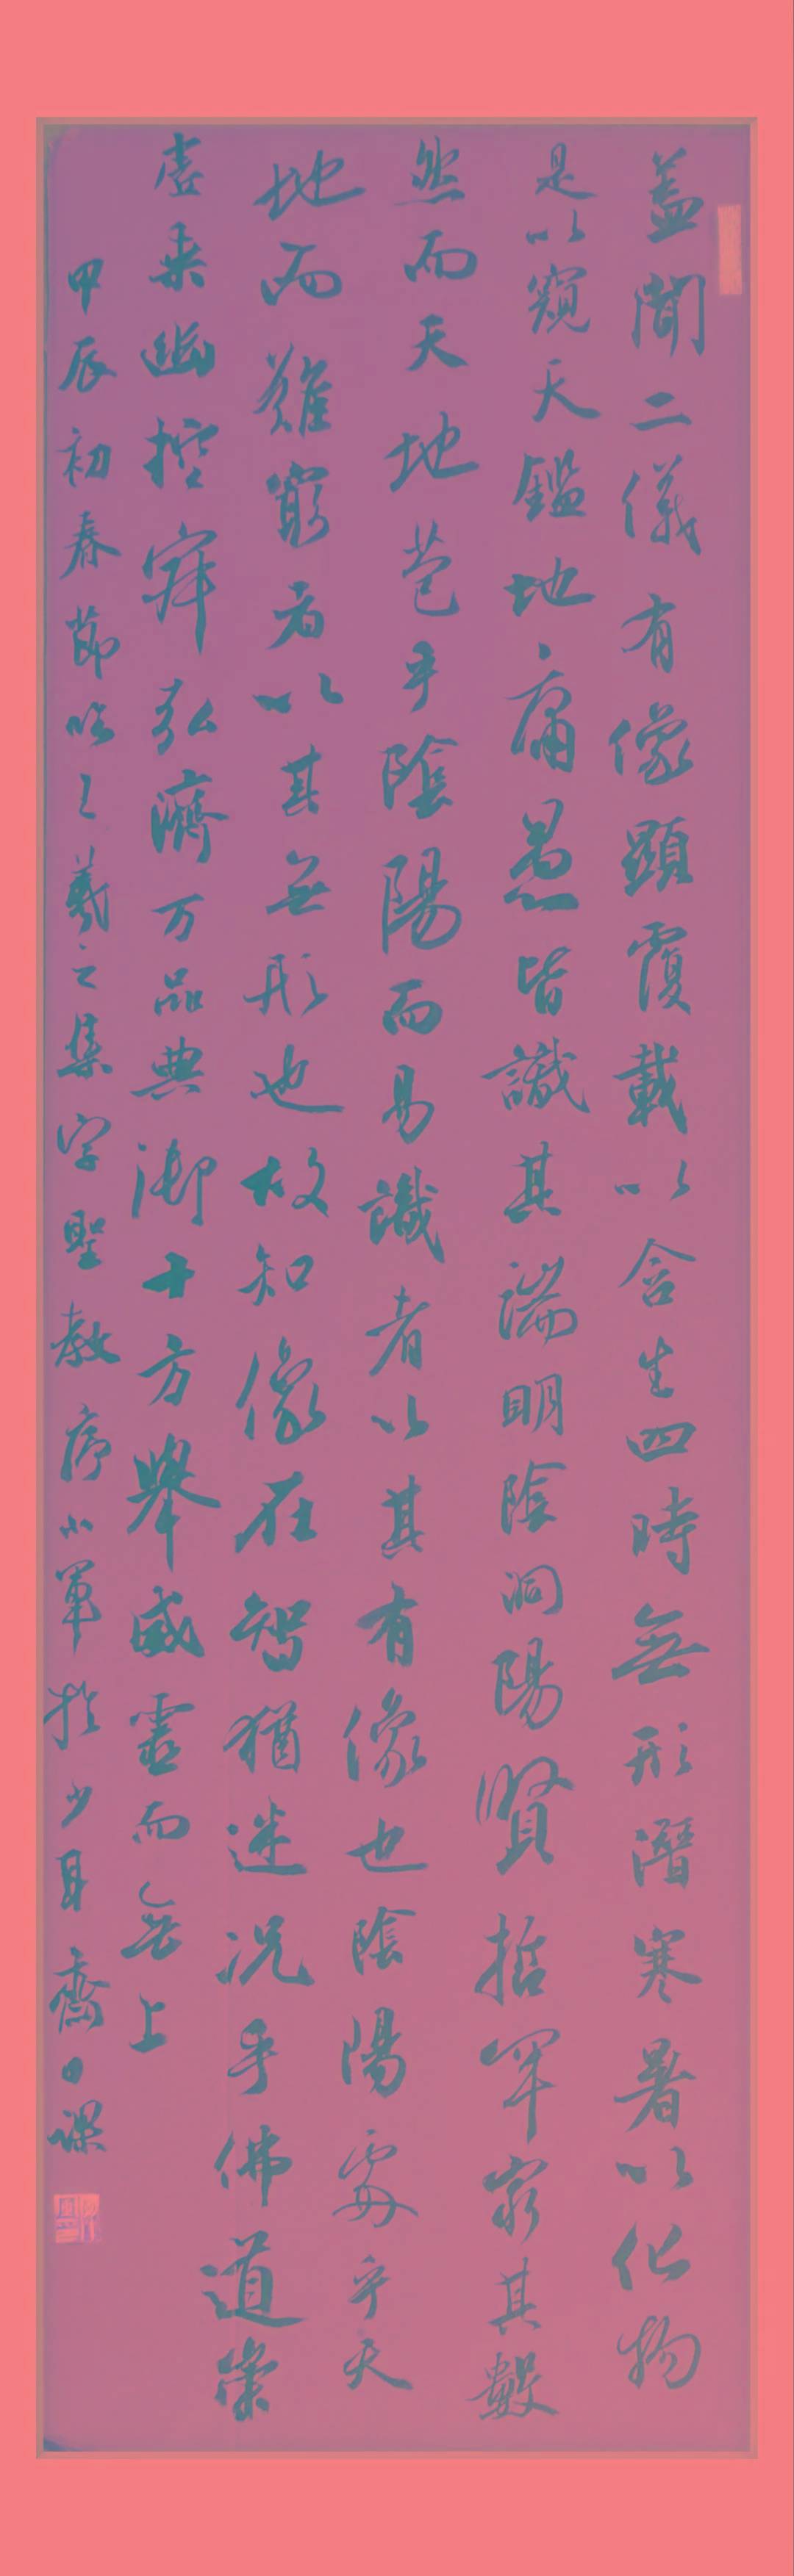 蓋聞二儀有像顯覆載以含生四時無形潛寒暑以化物
是以窺天鑑地庸愚皆識其端明陰洞陽賢哲罕窮其數
然而天地苞乎陰陽而易識者以其有像也陰陽處乎天
地而難窮者以其無形也故知像在智猶迷況乎佛道崇
虛乘幽控寂弘濟万品典御十方舉威靈而無上
甲辰初春節临王羲之集字聖教序小軍於少耳齋日課